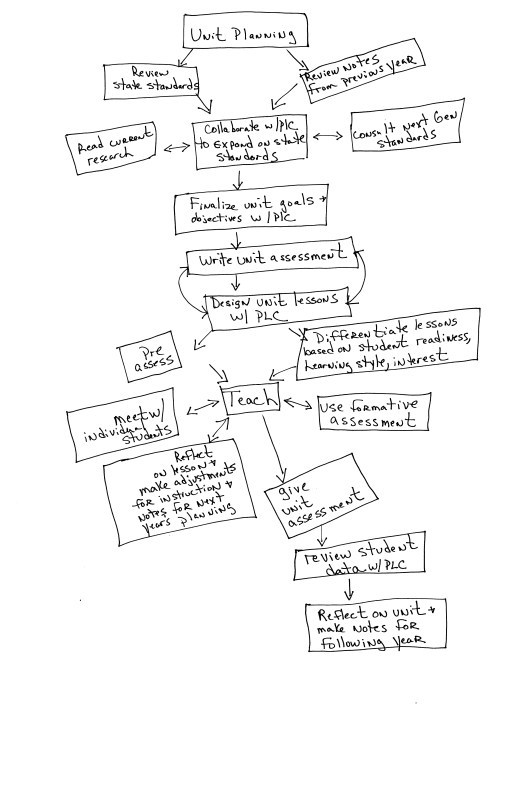 Unit Planning
Review
state standards
Review Notes
from previous year
Collaborate w/PLC
to Expand on state
standards
Read current
research
Consult Next Gen
standards
Finalize unit goals +
objectives w/PLC
Write unit assessment
Design unit lessons
w/ PLC
Pre
assess
Differentiate lessons
based on student readiness,
learning style, interest
Teach
meet w/
individual
students
use formative
assessment
Reflect
on lesson +
make adjustments
for instruction +
notes for next
years planning
give
unit
assessment
review student
data w/PLC
Reflect on unit +
make notes for
following year